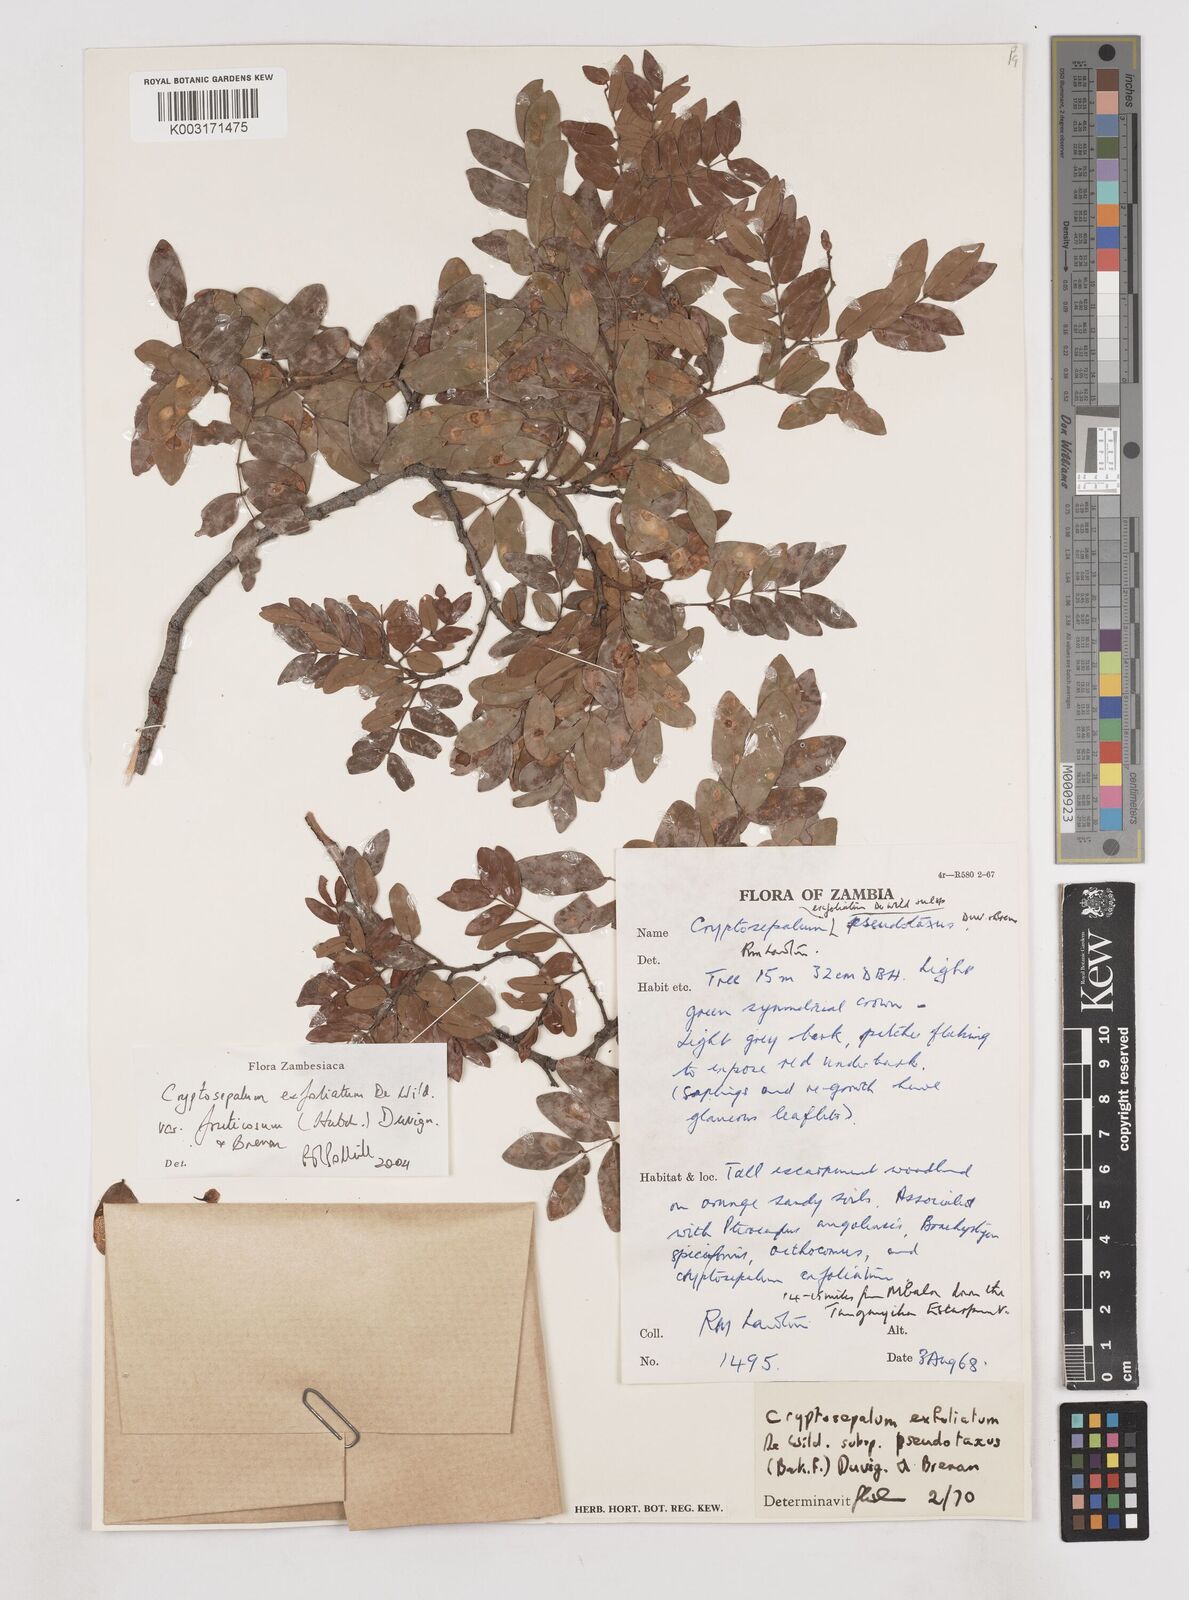 ROYAL BOTANIC GARDENS KEW
K003171475
4r—R580 2-67
FLORA OF ZAMBIA
exfoliatum De Wild subsp
Name Cryptosepalum pseudotaxus Duv. & Bren
Det. Rm Lawton.
Habit etc. Tree 15 m 32 cm DBH. Light
green symmetrical crown -
Light grey bark, patches flaking
to expose red underbark.
(Saplings and re-growth have
glaucous leaflets).
Habitat & loc. Tall escarpment woodland
on orange sandy soils. Associated
with Pterocarpus angolensis, Brachystegia
spiciformis, and
cryptosepalum exfoliatum.
14-15 miles from Mbala down the
Tanganyika Escarpment.
Coll. RM Lawton Alt.
No. 1495. Date 3 Aug 68.
Flora Zambesiaca
Cryptosepalum exfoliatum De Wild.
var. fruticosum (Hutch.) Duvign.
& Brenan
Det. RM Polhill 2004
Cryptosepalum exfoliatum
De Wild. subsp. pseudotaxus
(Bak.f.) Duvig. & Brenan
Determinavit 2/70
HERB. HORT. BOT. REG. KEW.
inches
centimeters
Density
Don Williams
M000923
Kew
Royal Botanic Gardens
0 1 2 3 4 5 6 7 8 9 10
cm
copyright reserved